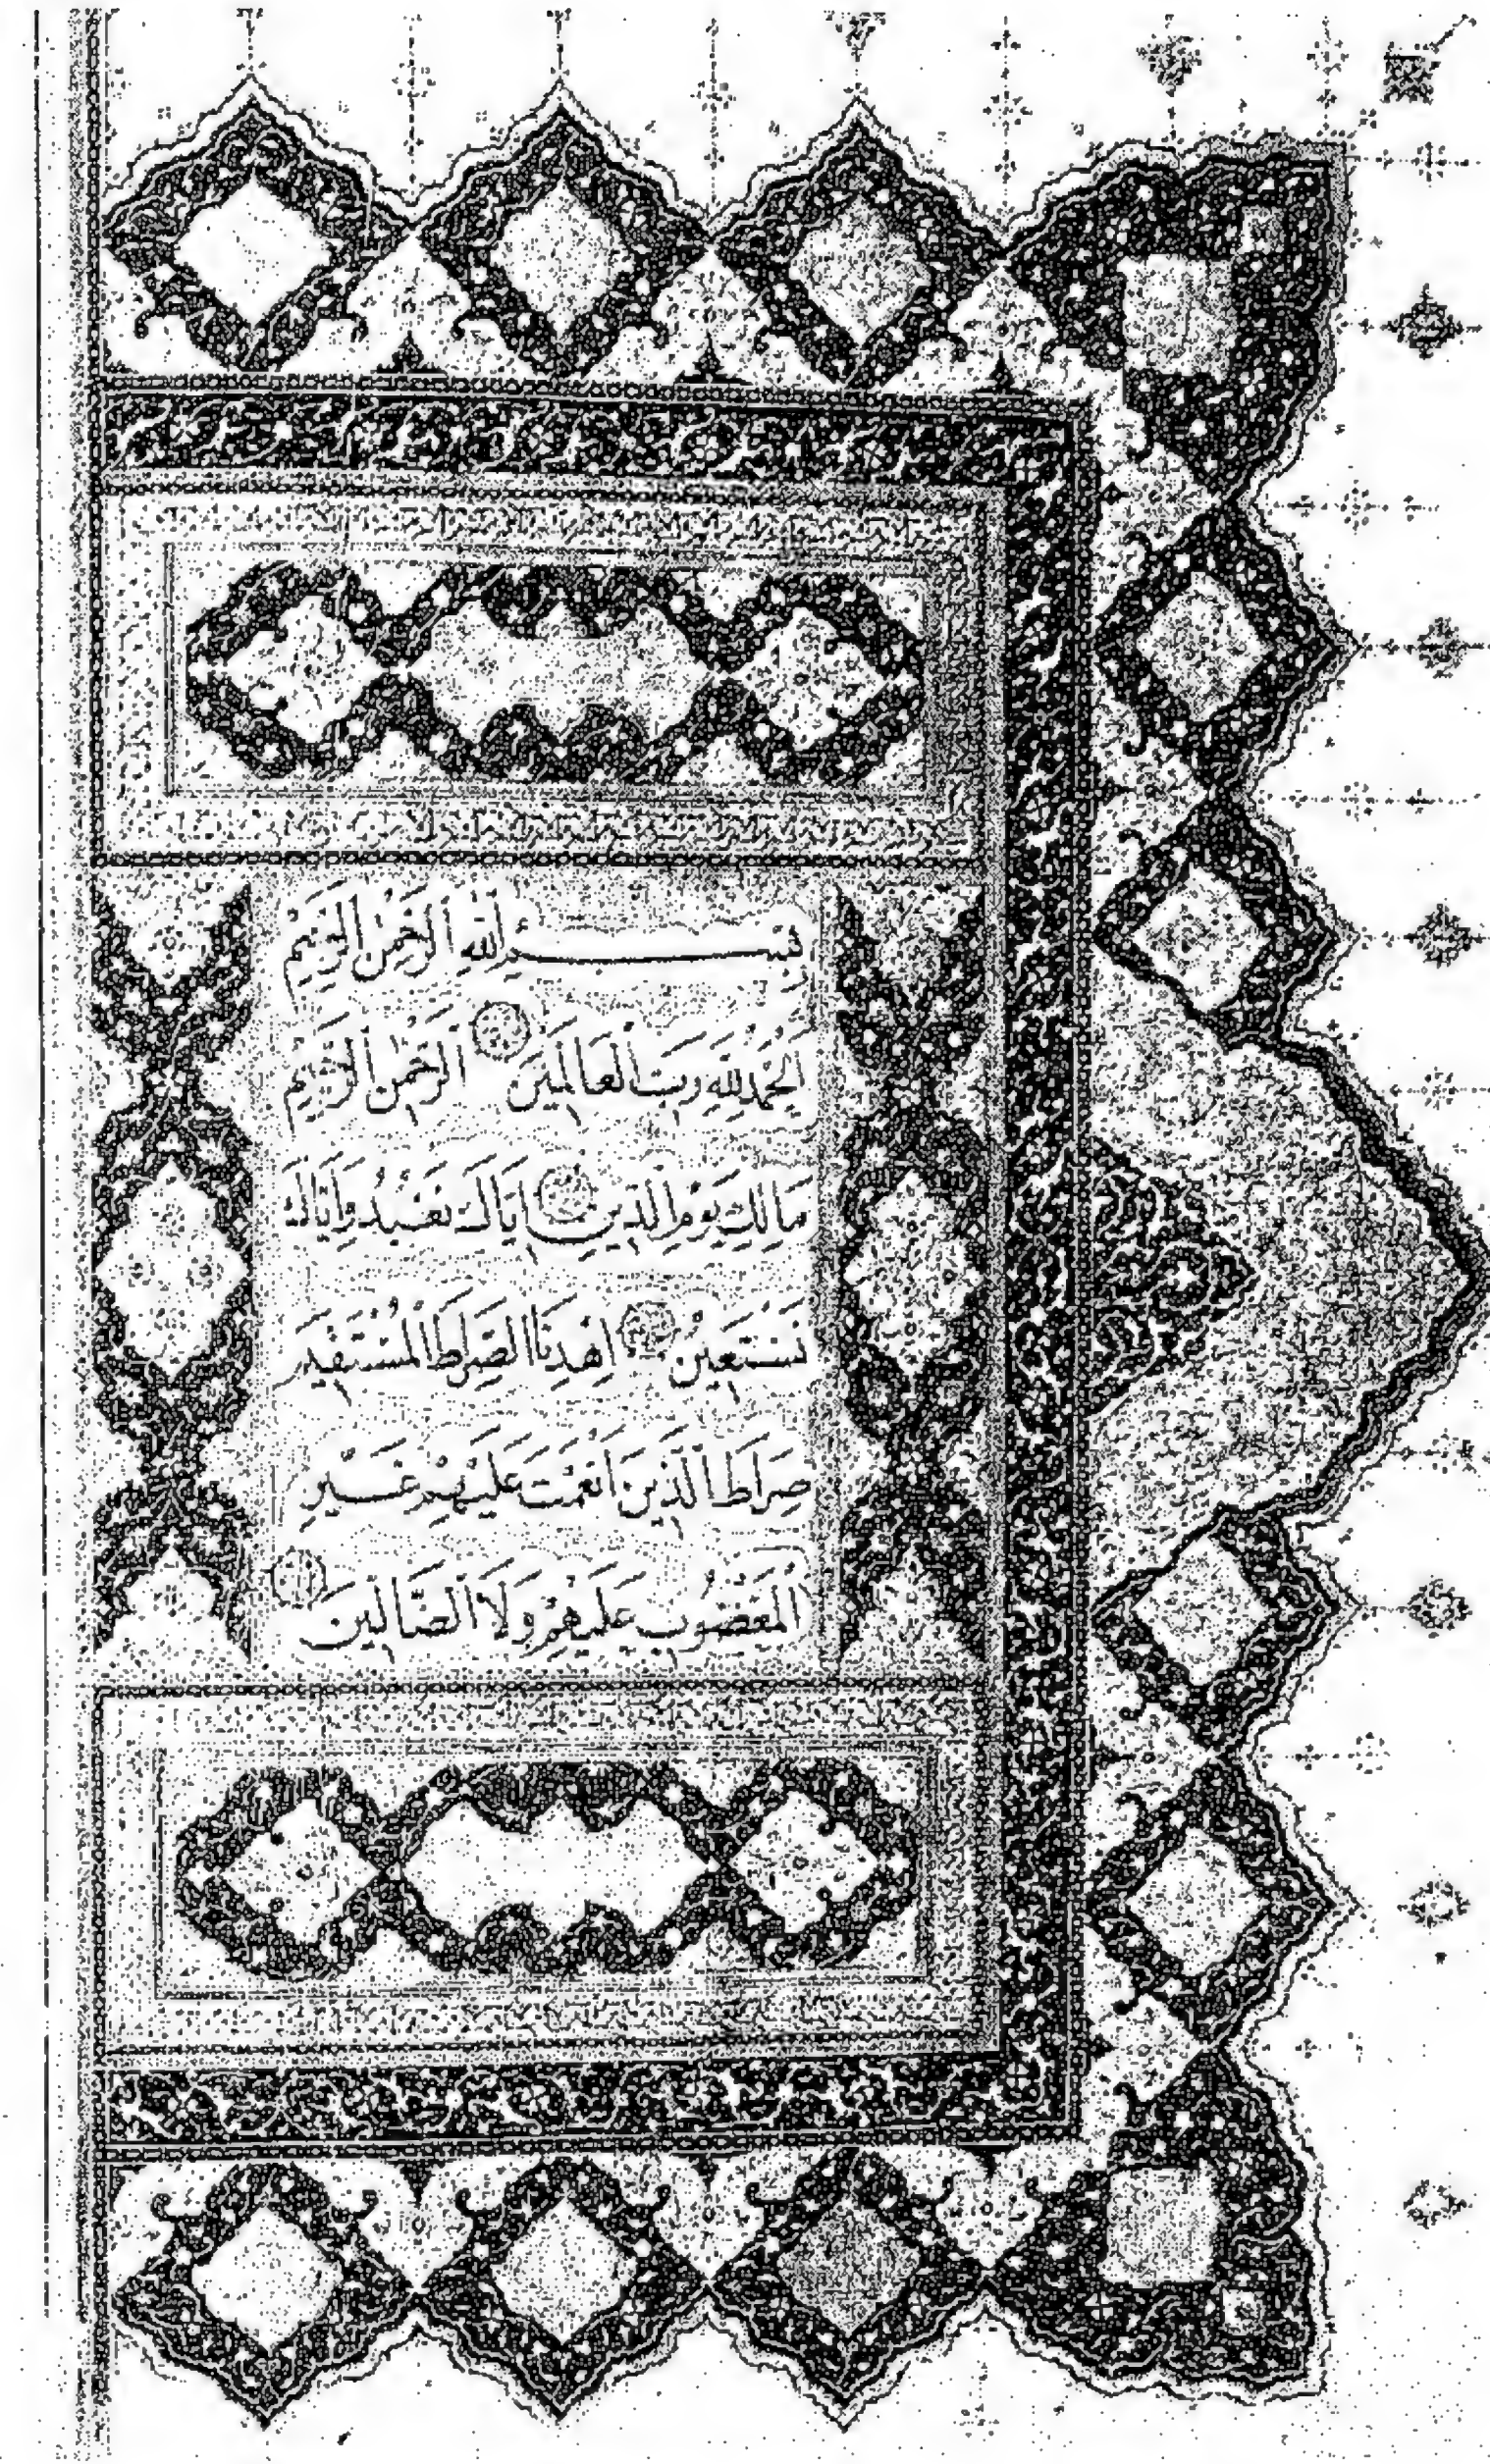 بِسْمِ اللهِ الرَّحْمٰنِ الرَّحِيْمِ
اَلْحَمْدُ لِلّٰهِ رَبِّ الْعَالَمِيْنَ اَلرَّحْمٰنِ الرَّحِيْمِ
مَالِكِ يَوْمِ الدِّيْنِ اِيَّاكَ نَعْبُدُ وَاِيَّاكَ
نَسْتَعِيْنُ اِهْدِنَا الصِّرَاطَ الْمُسْتَقِيْمَ
صِرَاطَ الَّذِيْنَ اَنْعَمْتَ عَلَيْهِمْ غَيْرِ
الْمَغْضُوْبِ عَلَيْهِمْ وَلَا الضَّالِّيْنَ